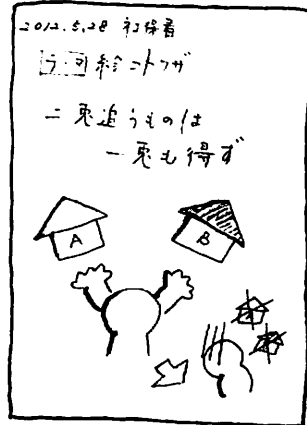 2012.5.28
絵コトワザ
二兎追うものは
一兎も得ず
A
B